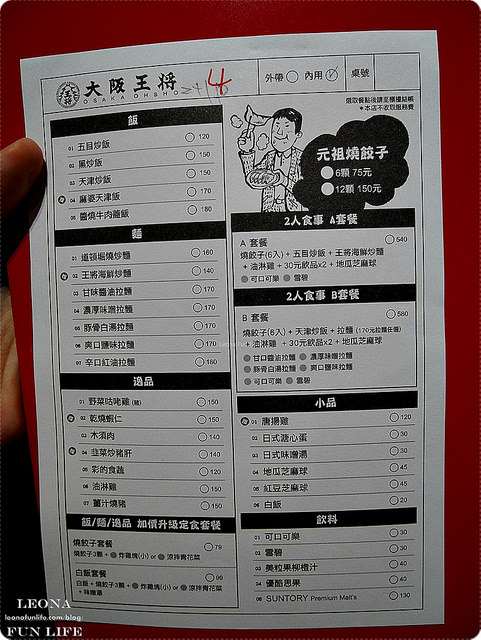 大阪王将
OSAKA OHSHO
4
外帶 內用 桌號
選取餐點後請至櫃檯結帳
*本店不收取服務費
飯
01 五目炒飯 120
02 黑炒飯 150
03 天津炒飯 150
04 麻婆天津飯 170
05 醬燒牛肉蓋飯 180
麵
01 道頓堀燒炒麵 160
02 王將海鮮炒麵 140
03 甘味醬油拉麵 170
04 濃厚味噌拉麵 170
05 豚骨白湯拉麵 170
06 爽口鹽味拉麵 170
07 辛口紅油拉麵 180
逸品
01 野菜咕咾雞 150
02 乾燒蝦仁 150
03 木須肉 140
04 韭菜炒豬肝 140
05 彩的食蔬 120
06 油淋雞 150
07 薑汁燒豬 150
飯/麵/逸品 加價升級定食套餐
燒餃子套餐 79
燒餃子3顆 + 炸雞塊(小) or 涼拌青花菜
白飯套餐 99
白飯 + 燒餃子3顆 + 炸雞塊(小) or 涼拌青花菜
+ 味噌湯
元祖燒餃子
6顆 75元
12顆 150元
2人食事 A套餐
A 套餐 540
燒餃子(6入) + 五目炒飯 + 王將海鮮炒麵
+ 油淋雞 + 30元飲品x2 + 地瓜芝麻球
可口可樂 雪碧
2人食事 B套餐
B 套餐 580
燒餃子(6入) + 天津炒飯 + 拉麵 (170元拉麵任選)
+ 油淋雞 + 30元飲品x2 + 地瓜芝麻球
甘口醬油拉麵 濃厚味噌拉麵
豚骨白湯拉麵 爽口鹽味拉麵
可口可樂 雪碧
小品
01 唐揚雞 120
02 日式溏心蛋 30
03 日式味噌湯 30
04 地瓜芝麻球 45
05 紅豆芝麻球 45
06 白飯 20
飲料
01 可口可樂 30
02 雪碧 30
03 美粒果柳橙汁 40
04 優酪思果 40
05 SUNTORY Premium Malt's 130
LEONA
leonafunlife.com/blog/
FUN LIFE